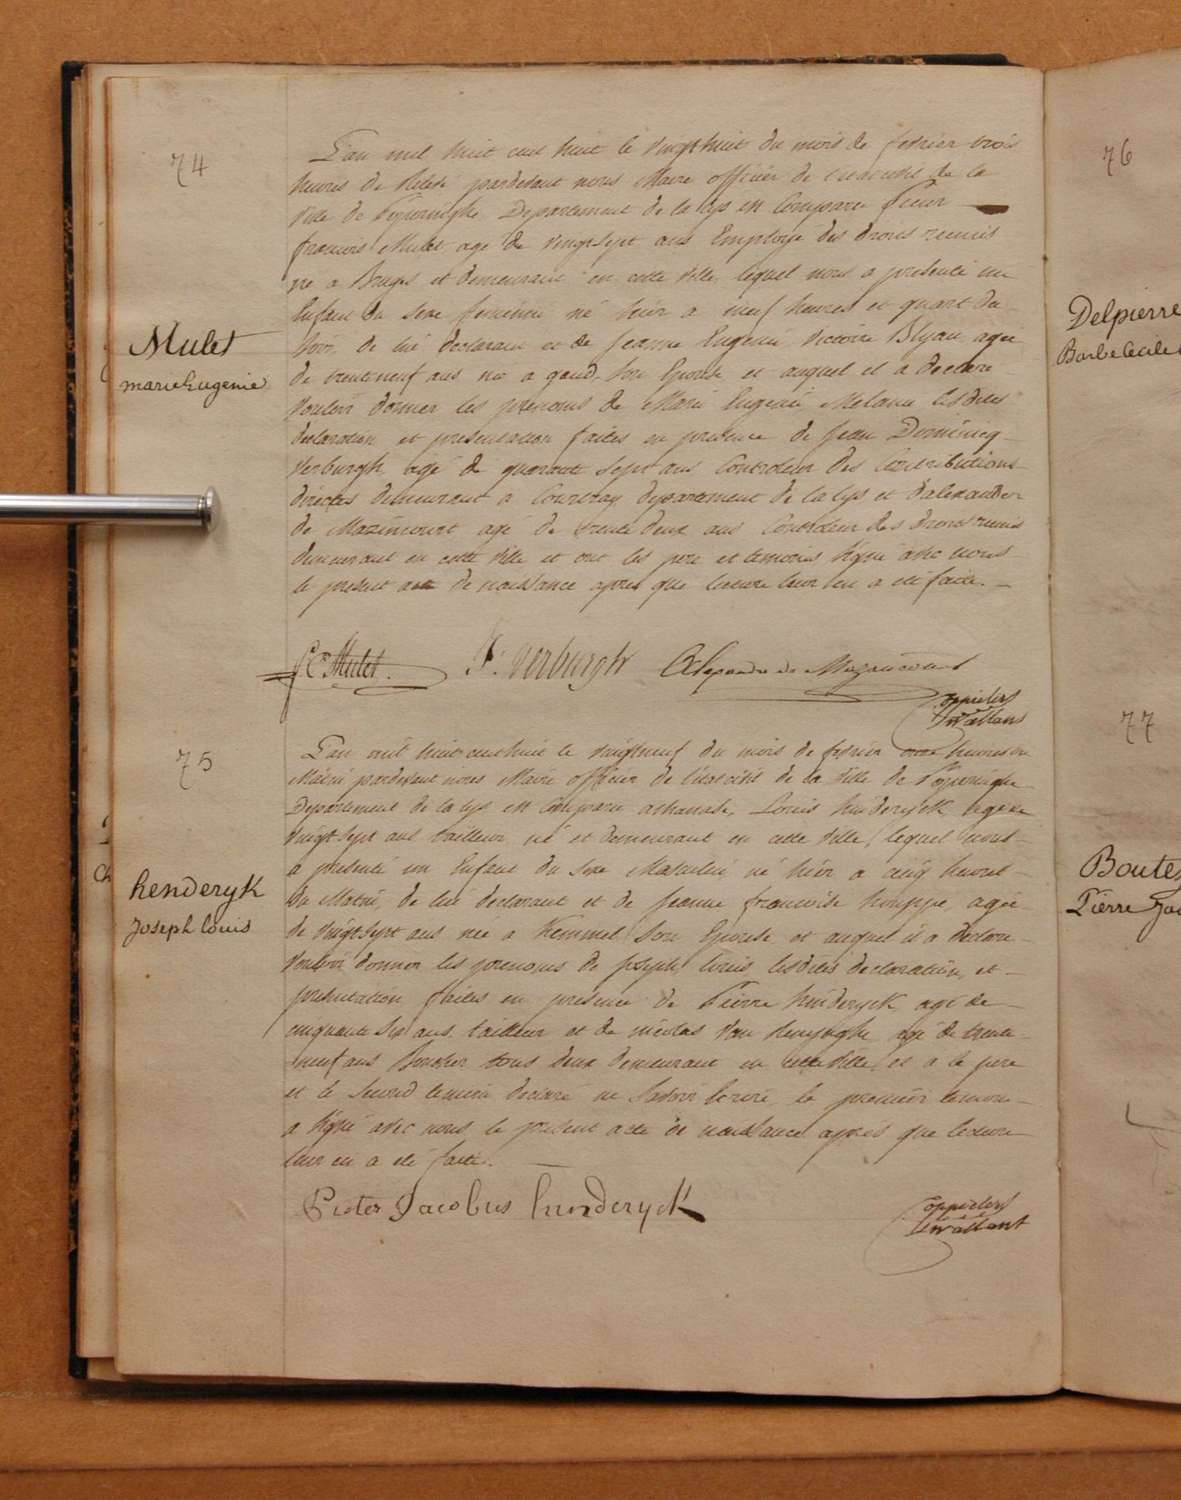 74
Mulet
marie Eugenie
L'an mil huit cent huit le vingt huit du mois de fevrier trois
heures de Relevé pardevant nous Maire officier de l'etat civil de la
Ville de Poperinghe Departement de la Lys est Comparu Sieur
francois Mulet agé de vingt sept ans Employé des droits reunis
né a Bruges et demeurant en cette Ville, lequel nous a presenté un
Enfant du Sexe feminin né hier a neuf heures et quart du
Soir, de lui declarant et de Jeanne Eugenie Victoire Blyau agée
de trent neuf ans née a gand Son Epouse et auquel il a declaré
Vouloir donner les prenoms de Marie Eugenie Melanie lesdites
declaration et presentation faites en presence de Jean Dominicq
Verburgh, agé de quarante Sept ans Controleur des Contributions
directes demeurant a Courtray departement de la lys et d'alexander
de Mazincourt agé de trente deux ans Controleur des droits reunis
demeurant en cette Ville et ont les pere et temoins Signé avec nous
le present acte de naissance apres que lecture leur en a eté faite.
Mulet. Verburgh Alexandre de Mazancourt
75
henderyk
Joseph louis
L'an mil huit cent huit le vingt neuf du mois de fevrier onze heures du
Matin pardevant nous Maire officier de l'etat civil de la Ville de Poperinghe
Departement de la lys est Comparu athanase, Louis hinderyck, agé de
vingt Sept ans tailleur, né et demeurant en cette Ville, lequel nous
a presenté un Enfant du Sexe Masculin né hier a cinq heures
du Matin, de lui declarant et de Jeanne francoise houppe, agée
de vingt Sept ans née a Kemmel Son Epouse et auquel il a declaré
Vouloir donner les prenoms de Joseph, louis, lesdites declaration, et
presentation faites en presence de Pierre hinderyck agé de
cinquante Six ans, tailleur et de nicolas Van agé de trente
neuf ans tous deux demeurant en cette Ville, et a le pere
et le Second temoin declaré ne Savoir Ecrire, le premier temoin
a Signé avec nous le present acte de naissance apres que lecture
leur en a eté faite.
Pieter Jacobus hinderyck
76
Delpierre
Barbe Cecile
77
Pierre